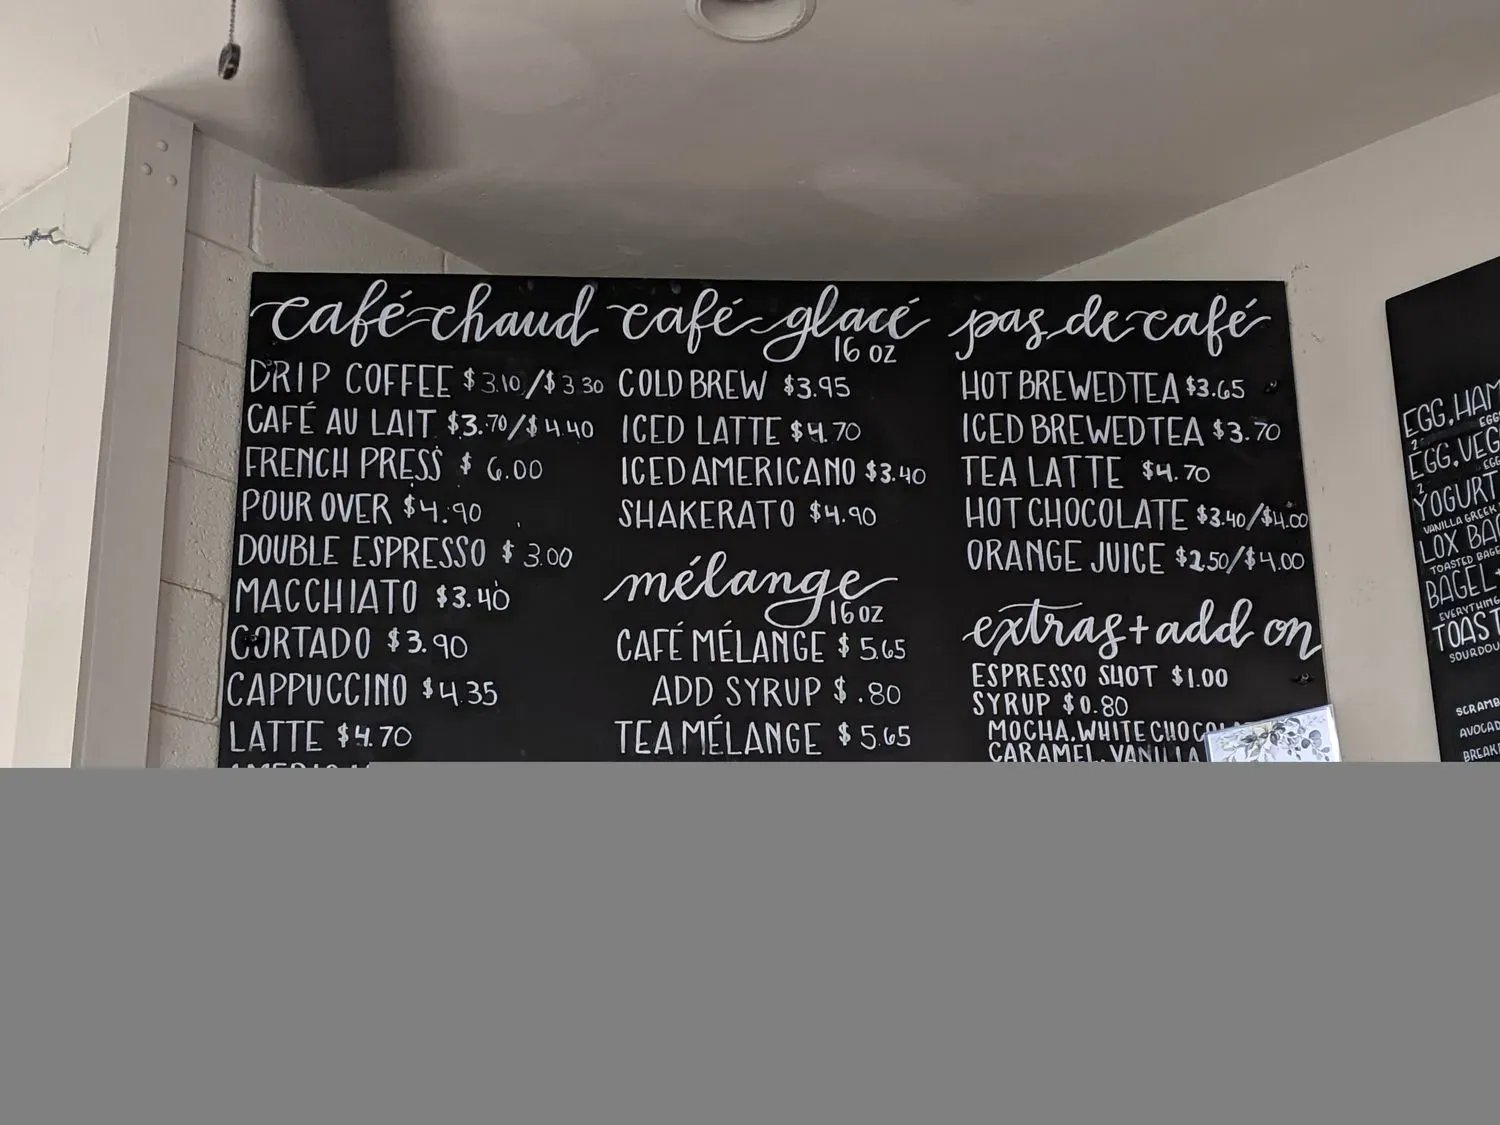 café chaud
DRIP COFFEE $3.10/$3.30
CAFÉ AU LAIT $3.70/$4.40
FRENCH PRESS $6.00
POUR OVER $4.90
DOUBLE ESPRESSO $3.00
MACCHIATO $3.40
CORTADO $3.90
CAPPUCCINO $4.35
LATTE $4.70
café glacé
16 oz
COLD BREW $3.95
ICED LATTE $4.70
ICED AMERICANO $3.40
SHAKERATO $4.90
mélange
16 oz
CAFÉ MÉLANGE $5.65
ADD SYRUP $.80
TEA MÉLANGE $5.65
pas de café
HOT BREWED TEA $3.65
ICED BREWED TEA $3.70
TEA LATTE $4.70
HOT CHOCOLATE $3.40/$4.00
ORANGE JUICE $2.50/$4.00
extras + add on
ESPRESSO SHOT $1.00
SYRUP $0.80
MOCHA, WHITE
CARAMEL, VANILLA
EGG, HAM
EGG, VEG
YOGURT
VANILLA GREEK
LOX
TOASTED
BAGEL
EVERYTHING
TOAST